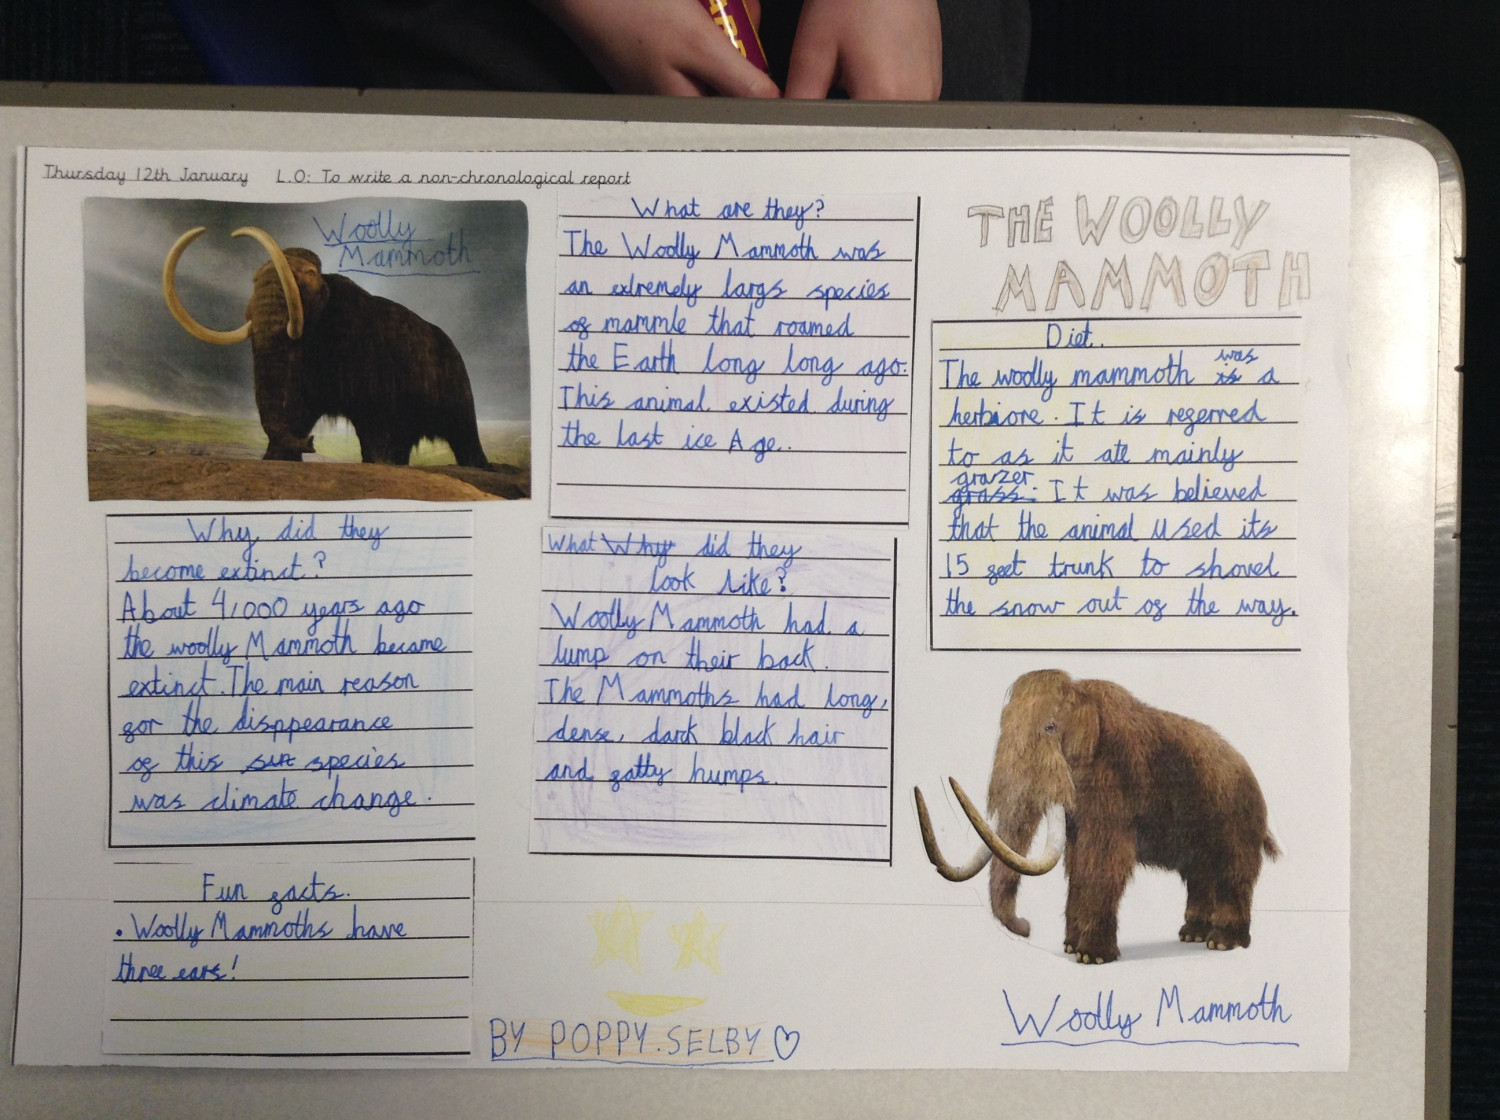 Thursday 12th January L.O: To write a non-chronological report
Woolly
Mammoth
What are they?
The Woolly Mammoth was
an extremely largs species
of mammle that roamed
the Earth long long ago.
This animal existed during
the last ice Age..
THE WOOLLY
MAMMOTH
Diet.
The woolly mammoth is was a
herbiore. It is referred
to as it ate mainly
grass. grazer It was believed
that the animal used its
15 feet trunk to shovel
the snow out of the way.
Why did they
become extinct?
About 4,000 years ago
the woolly Mammoth became
extinct. The main reason
for the disppearance
of this species
was climate change.
What Why did they
look like?
Woolly Mammoth had a
lump on their back.
The Mammoths had long,
dense, dark black hair
and fatty humps.
Fun facts.
• Woolly Mammoths have
three ears!
BY POPPY.SELBY
Woolly Mammoth